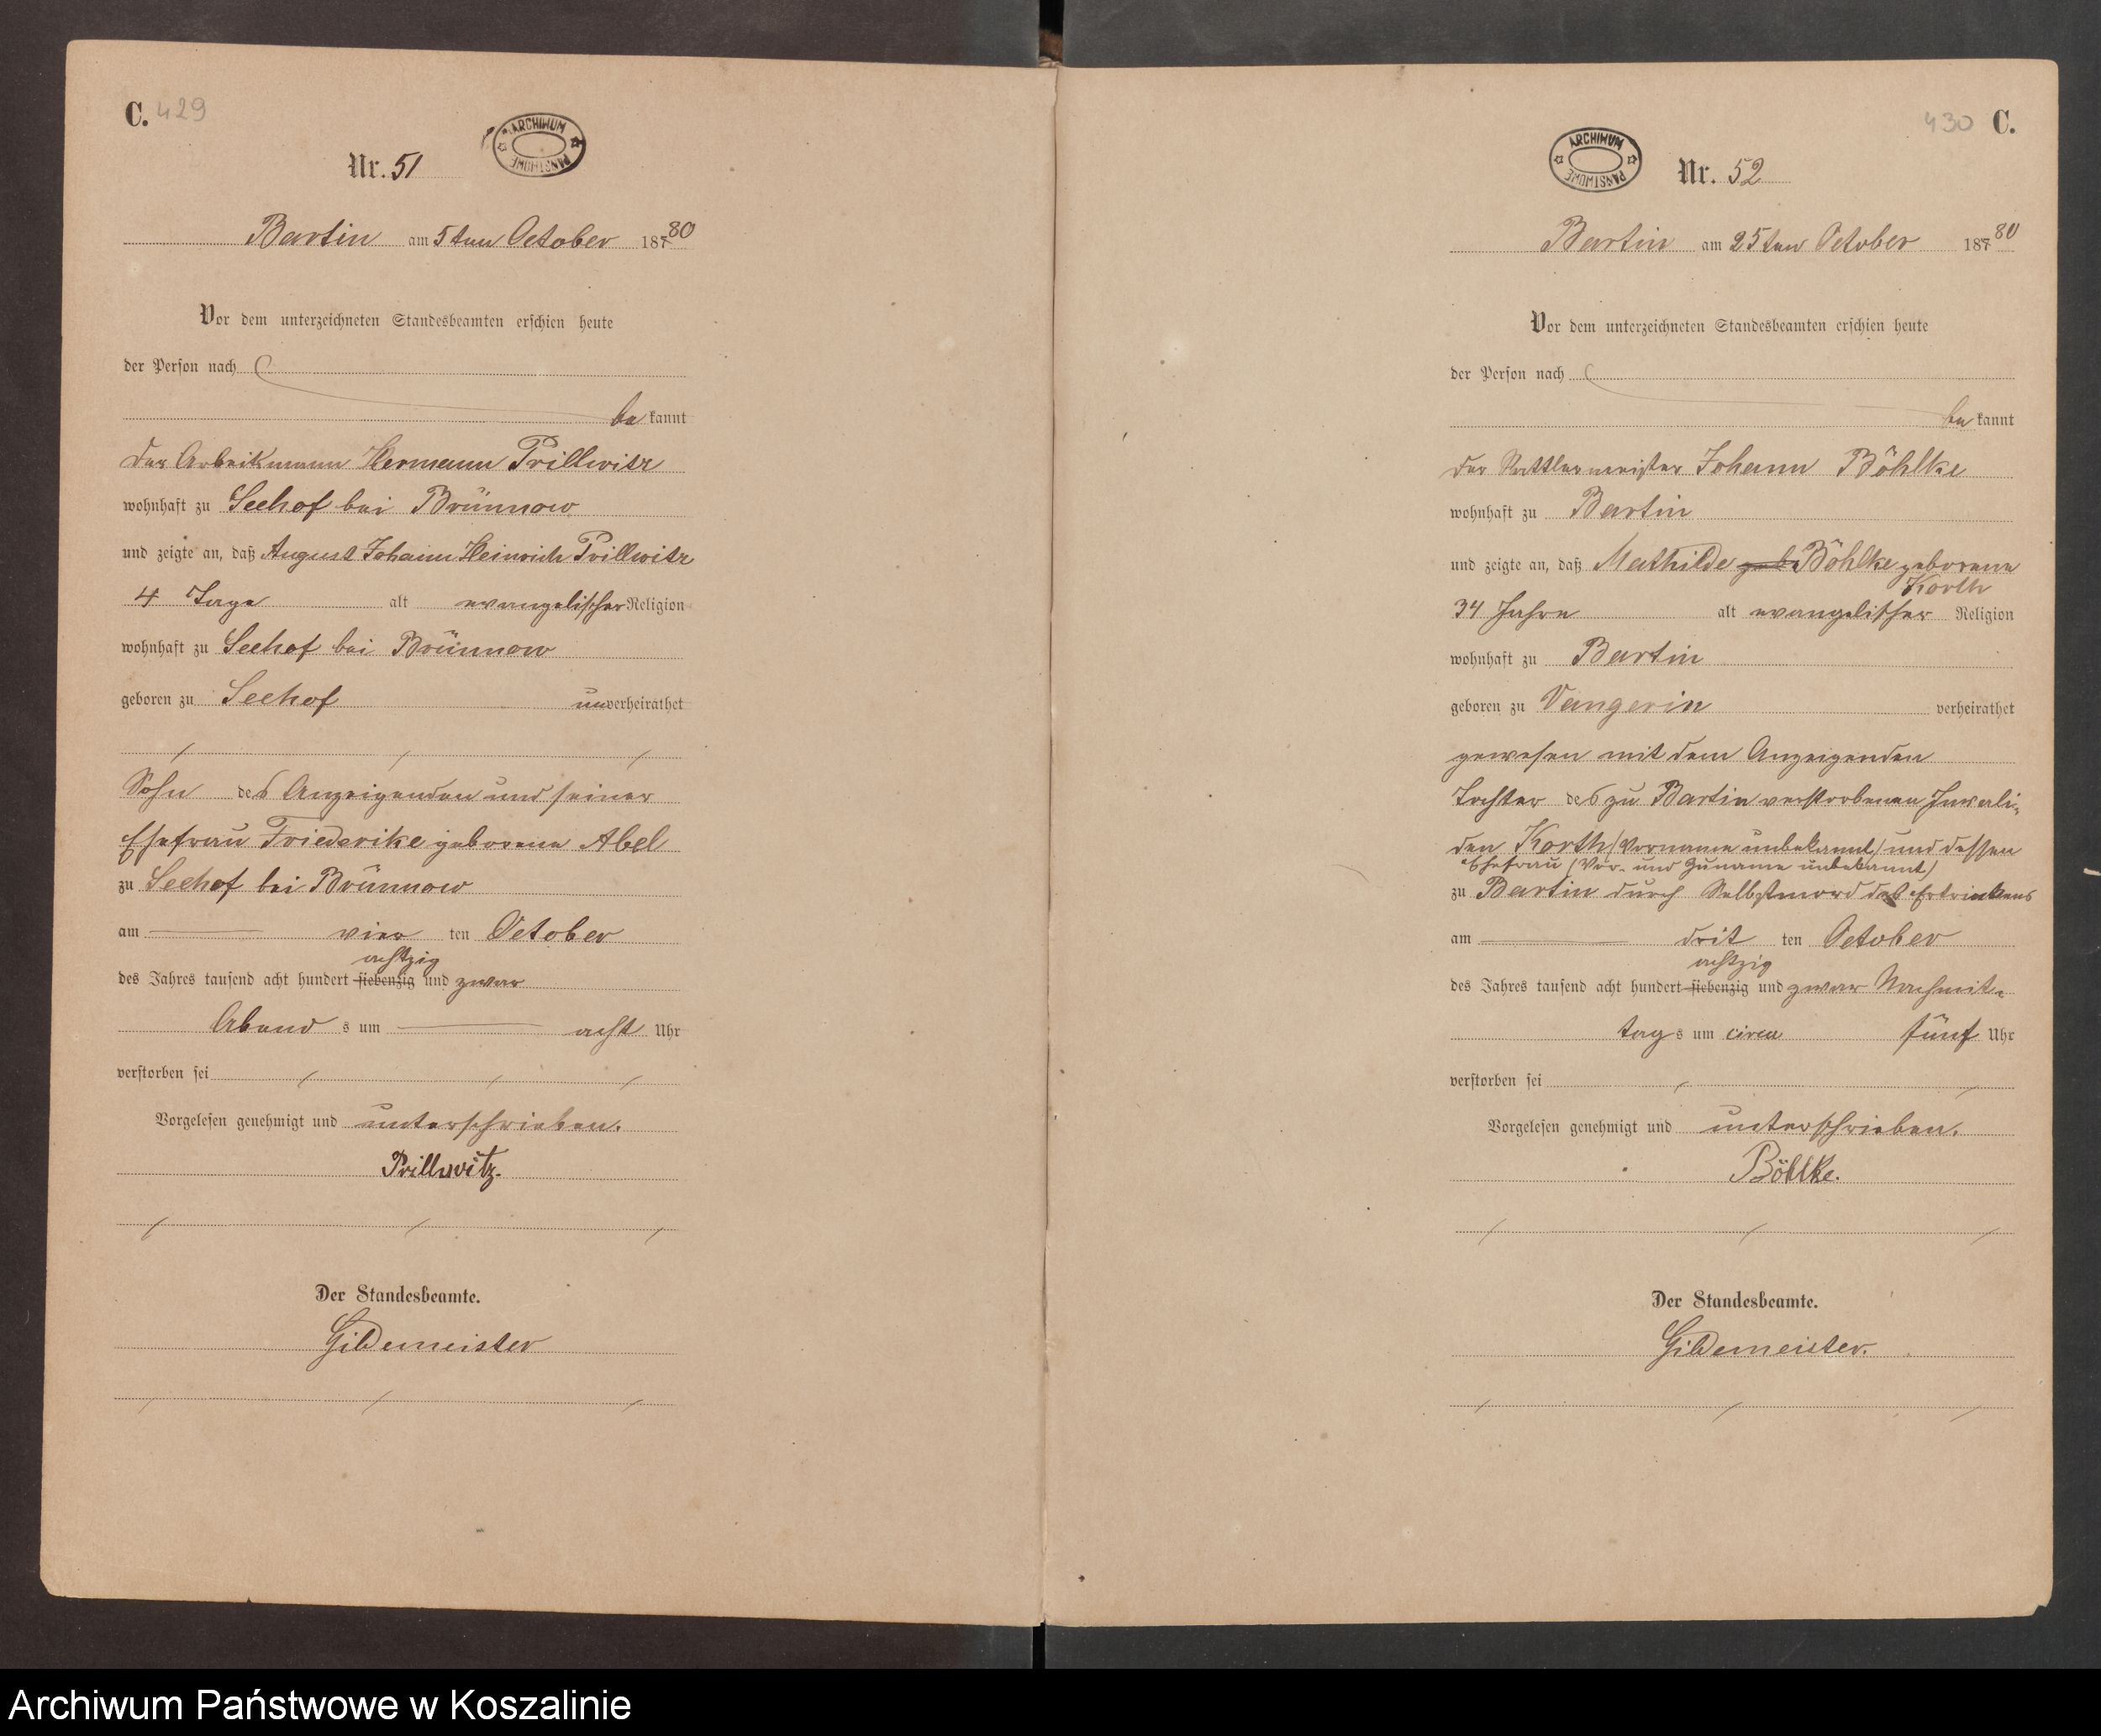 C. 429
ARCHIWUM PAŃSTWOWE
Nr. 51
Bartin am 5ten October 18780
Vor dem unterzeichneten Standesbeamten erschien heute
der Person nach
bekannt
der Arbeitsmann Hermann Prillwitz
wohnhaft zu Seehof bei Brünnow
und zeigte an, daß August Johann Heinrich Prillwitz
4 Tage alt evangelischer Religion
wohnhaft zu Seehof bei Brünnow
geboren zu Seehof unverheirathet
Sohn des Anzeigenden und seiner
Ehefrau Friederike geborene Abel
zu Seehof bei Brünnow
am vier ten October
achtzig
des Jahres tausend acht hundert siebenzig und zwar
Abend s um acht Uhr
verstorben sei
Vorgelesen genehmigt und unterschrieben.
Prillwitz.
Der Standesbeamte.
Gildemeister
430 C.
ARCHIWUM PAŃSTWOWE
Nr. 52
Bartin am 25ten October 18780
Vor dem unterzeichneten Standesbeamten erschien heute
der Person nach
bekannt
der Sattlermeister Johann Böhlke
wohnhaft zu Bartin
und zeigte an, daß Mathilde geb. Böhlke geborene
Korth
34 Jahre alt evangelischer Religion
wohnhaft zu Bartin
geboren zu Vangerin verheirathet
gewesen mit dem Anzeigenden
Tochter des zu Bartin verstorbenen Invali-
den Korth (Vorname unbekannt) und dessen
Ehefrau (Vor- und Zuname unbekannt)
zu Bartin durch Selbstmord des Ertrinkens
am drit ten October
achtzig
des Jahres tausend acht hundert siebenzig und zwar Nachmit-
tag s um circa fünf Uhr
verstorben sei
Vorgelesen genehmigt und unterschrieben.
Böhlke.
Der Standesbeamte.
Gildemeister.
Archiwum Państwowe w Koszalinie